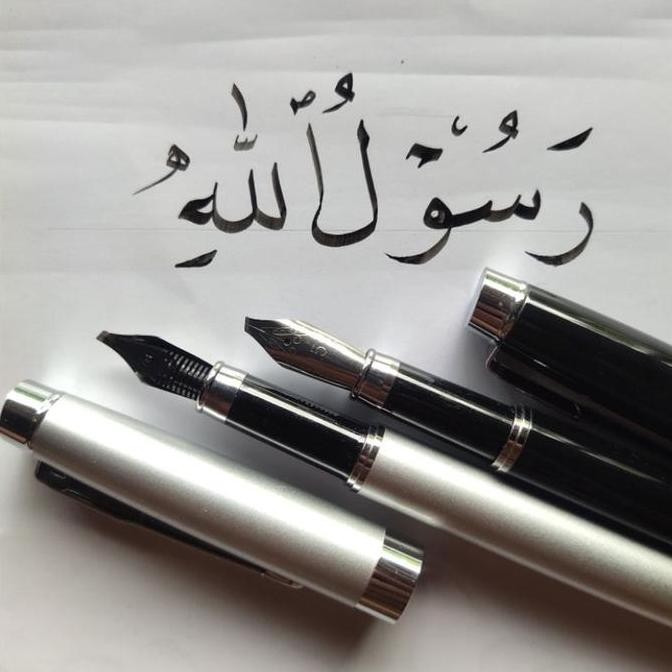 رَسُوْلُ ٱللّٰهِ